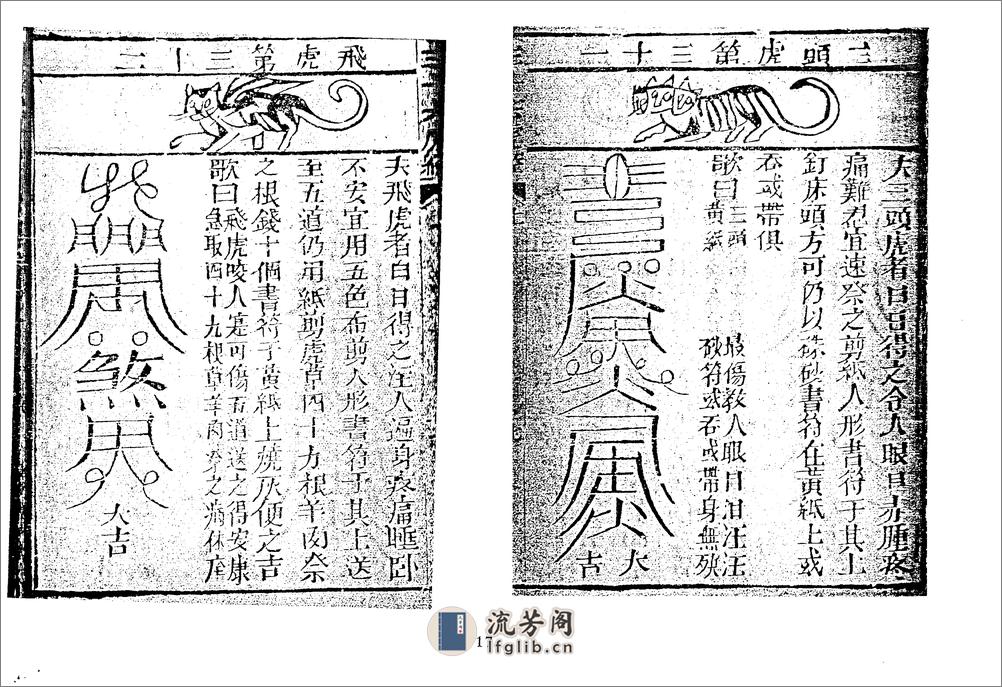 三頭虎第三十一
夫三頭虎者日日得之令人眼目赤腫疼
痛難忍宜速祭之剪紙人形書符于其上
釘床頭方可仍以硃砂書符在黃紙上或
吞或帶俱
歌曰三頭 最傷教人眼目泪汪汪
黃紙 砍符或吞或帶身無殃
大吉
飛虎第三十二
夫飛虎者白日得之注人遍身疼痛睡卧
不安宜用五色布剪人形書符于其上送
至五道仍用紙剪虎草四十九根羊肉祭
之根錢十個書符于黃紙上燒灰便之吉
歌曰飛虎咬人寔可傷五道送之得安康
急取四十九根草羊肉祭之病休
大吉
流芳阁
lfglib.cn
17